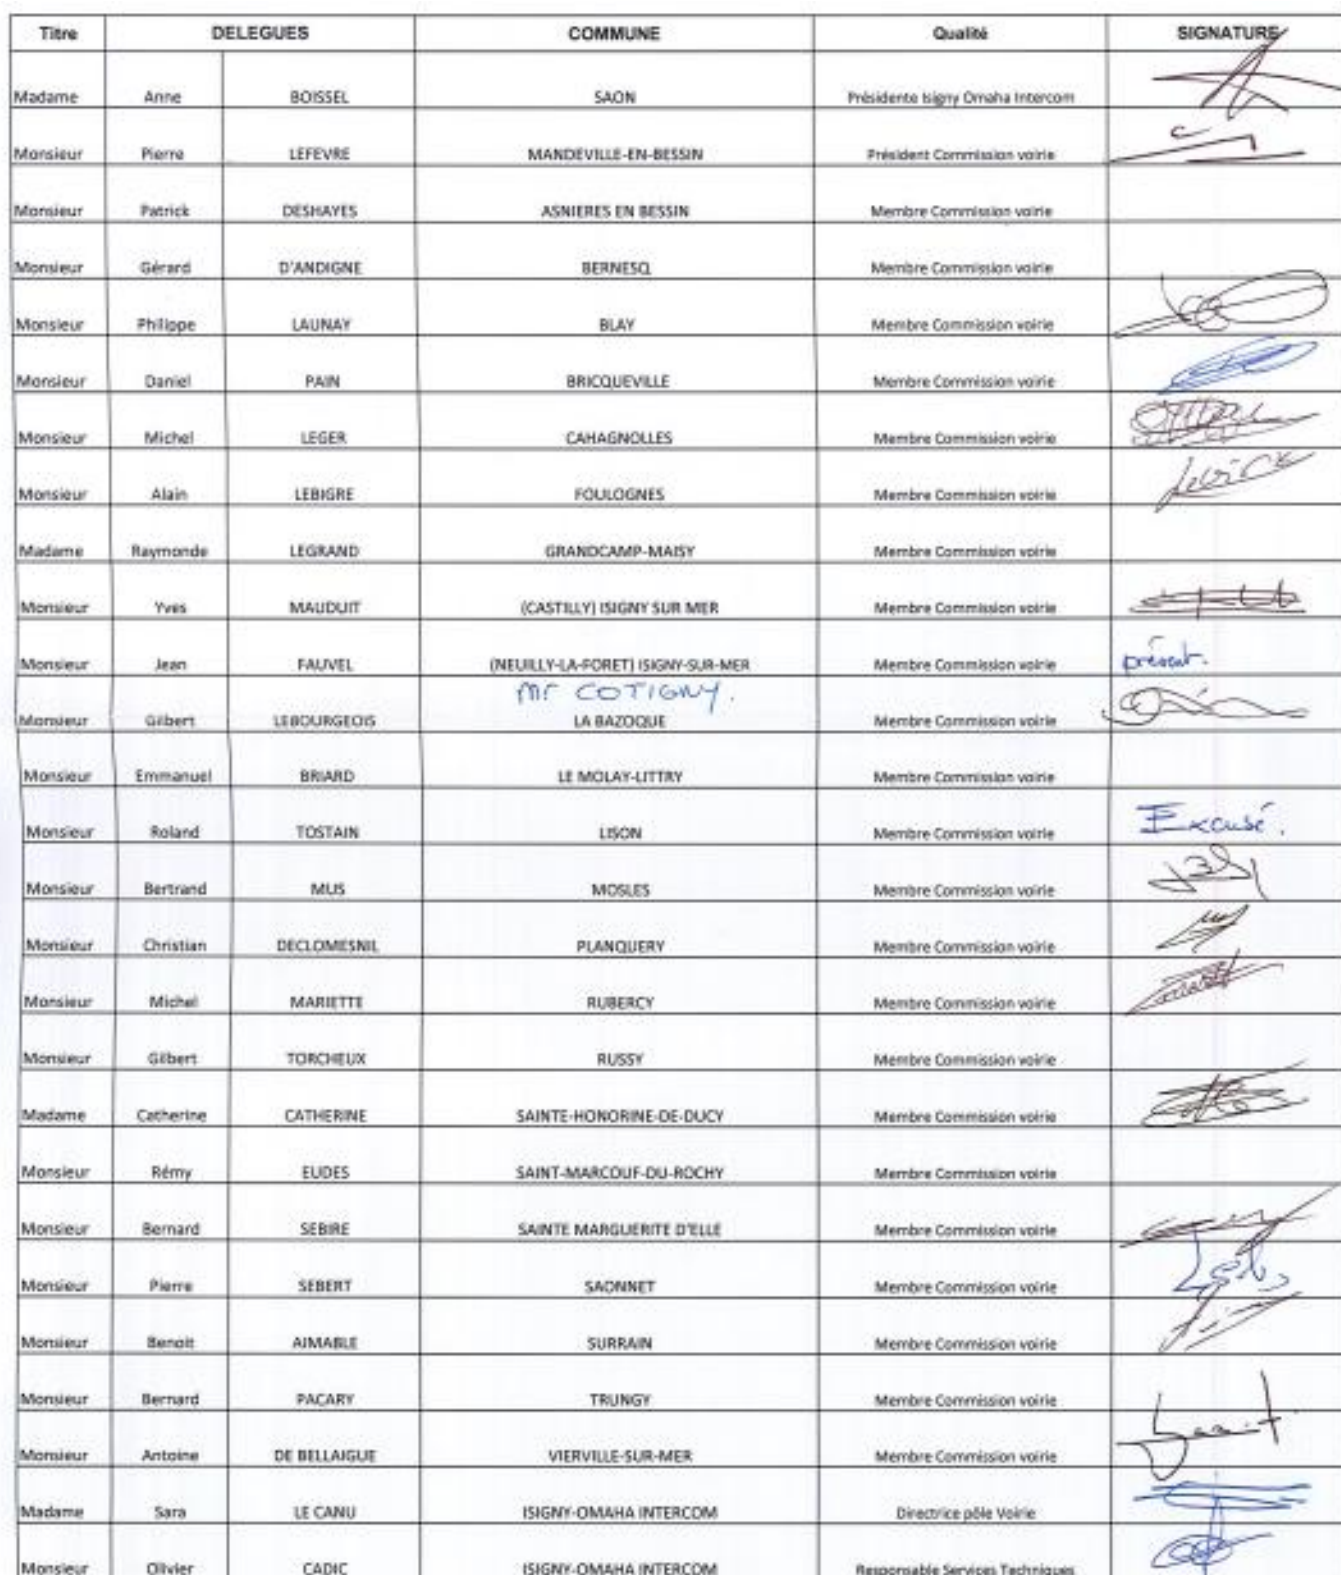 Titre DELEGUES COMMUNE Qualité SIGNATURE
Madame Anne BOISSEL SAON Présidente Isigny Omaha Intercom
Monsieur Pierre LEFEVRE MANDEVILLE-EN-BESSIN Président Commission voirie
Monsieur Patrick DESHAYES ASNIERES EN BESSIN Membre Commission voirie
Monsieur Gérard D'ANDIGNE BERNESQ Membre Commission voirie
Monsieur Philippe LAUNAY BLAY Membre Commission voirie
Monsieur Daniel PAIN BRICQUEVILLE Membre Commission voirie
Monsieur Michel LEGER CAHAGNOLLES Membre Commission voirie
Monsieur Alain LEBIGRE FOULOGNES Membre Commission voirie
Madame Raymonde LEGRAND GRANDCAMP-MAISY Membre Commission voirie
Monsieur Yves MAUDUIT (CASTILLY) ISIGNY SUR MER Membre Commission voirie
Monsieur Jean FAUVEL (NEUILLY-LA-FORET) ISIGNY-SUR-MER Membre Commission voirie présent.
Mr COTIGNY.
Monsieur Gilbert LEBOURGEOIS LA BAZOQUE Membre Commission voirie
Monsieur Emmanuel BRIARD LE MOLAY-LITTRY Membre Commission voirie
Monsieur Roland TOSTAIN LISON Membre Commission voirie Excusé.
Monsieur Bertrand MUS MOSLES Membre Commission voirie
Monsieur Christian DECLOMESNIL PLANQUERY Membre Commission voirie
Monsieur Michel MARIETTE RUBERCY Membre Commission voirie
Monsieur Gilbert TORCHEUX RUSSY Membre Commission voirie
Madame Catherine CATHERINE SAINTE-HONORINE-DE-DUCY Membre Commission voirie
Monsieur Rémy EUDES SAINT-MARCOUF-DU-ROCHY Membre Commission voirie
Monsieur Bernard SEBIRE SAINTE MARGUERITE D'ELLE Membre Commission voirie
Monsieur Pierre SEBERT SAONNET Membre Commission voirie
Monsieur Benoit AIMABLE SURRAIN Membre Commission voirie
Monsieur Bernard PACARY TRUNGY Membre Commission voirie
Monsieur Antoine DE BELLAIGUE VIERVILLE-SUR-MER Membre Commission voirie
Madame Sara LE CANU ISIGNY-OMAHA INTERCOM Directrice pôle Voirie
Monsieur Olivier CADIC ISIGNY-OMAHA INTERCOM Responsable Services Techniques